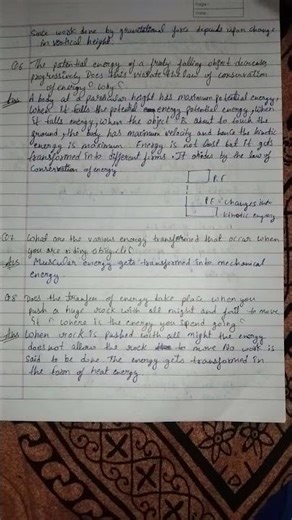 Since work done by gravitational force depends upon change
in vertical height.
Q6 The potential energy of a freely falling object decreases
progressively. Does this violate the law of conservation
of energy? Why?
Ans A body at a particular height has maximum potential energy
when it falls the potential energy, potential energy
It falls energy, when the object is about to touch the
ground the body has maximum velocity and hence the kinetic
energy is maximum. Energy is not lost but it gets
transformed into different forms. It abides by the law of
Conservation of energy
P.E
P.E changes into
kinetic energy
Q7 What are the various energy transformed that occur when
you are riding a bicycle?
Ans Muscular energy gets transformed into mechanical
energy
Q8 Does the transfer of energy take place when you
push a huge rock with all might and fail to move
it? Where is the energy you spend going?
Ans When rock is pushed with all might the energy
does not allows the rock to move No work is
said to be done The energy gets transformed in
the form of heat energy